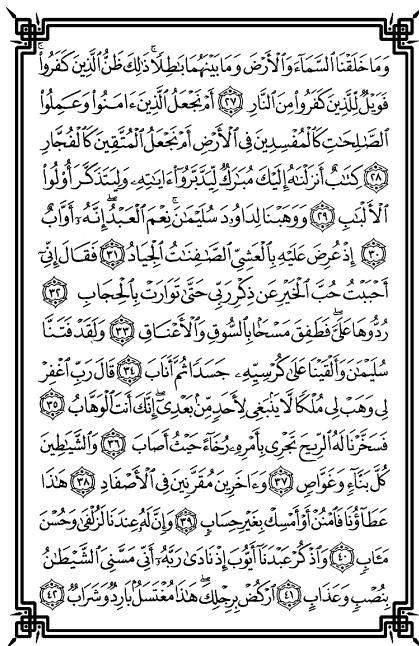 وَمَا خَلَقْنَا السَّمَآءَ وَالْأَرْضَ وَمَا بَيْنَهُمَا بَاطِلًا ۚ ذَٰلِكَ ظَنُّ الَّذِينَ كَفَرُوا ۚ
فَوَيْلٌ لِّلَّذِينَ كَفَرُوا مِنَ النَّارِ ﴿٢٧﴾ أَمْ نَجْعَلُ الَّذِينَ ءَامَنُوا وَعَمِلُوا
الصَّالِحَاتِ كَالْمُفْسِدِينَ فِى الْأَرْضِ أَمْ نَجْعَلُ الْمُتَّقِينَ كَالْفُجَّارِ
﴿٢٨﴾ كِتَابٌ أَنزَلْنَاهُ إِلَيْكَ مُبَارَكٌ لِّيَدَّبَّرُوا ءَايَاتِهِ وَلِيَتَذَكَّرَ أُولُوا
الْأَلْبَابِ ﴿٢٩﴾ وَوَهَبْنَا لِدَاوُۥدَ سُلَيْمَانَ ۚ نِعْمَ الْعَبْدُ ۖ إِنَّهُۥٓ أَوَّابٌ
﴿٣٠﴾ إِذْ عُرِضَ عَلَيْهِ بِالْعَشِىِّ الصَّافِنَاتُ الْجِيَادُ ﴿٣١﴾ فَقَالَ إِنِّىٓ
أَحْبَبْتُ حُبَّ الْخَيْرِ عَن ذِكْرِ رَبِّى حَتَّىٰ تَوَارَتْ بِالْحِجَابِ ﴿٣٢﴾
رُدُّوهَا عَلَىَّ ۖ فَطَفِقَ مَسْحًا بِالسُّوقِ وَالْأَعْنَاقِ ﴿٣٣﴾ وَلَقَدْ فَتَنَّا
سُلَيْمَانَ وَأَلْقَيْنَا عَلَىٰ كُرْسِيِّهِۦ جَسَدًا ثُمَّ أَنَابَ ﴿٣٤﴾ قَالَ رَبِّ اغْفِرْ
لِى وَهَبْ لِى مُلْكًا لَّا يَنۢبَغِى لِأَحَدٍ مِّنۢ بَعْدِىٓ ۖ إِنَّكَ أَنتَ الْوَهَّابُ ﴿٣٥﴾
فَسَخَّرْنَا لَهُ الرِّيحَ تَجْرِى بِأَمْرِهِۦ رُخَآءً حَيْثُ أَصَابَ ﴿٣٦﴾ وَالشَّيَاطِينَ
كُلَّ بَنَّآءٍ وَغَوَّاصٍ ﴿٣٧﴾ وَءَاخَرِينَ مُقَرَّنِينَ فِى الْأَصْفَادِ ﴿٣٨﴾ هَٰذَا
عَطَآؤُنَا فَامْنُنْ أَوْ أَمْسِكْ بِغَيْرِ حِسَابٍ ﴿٣٩﴾ وَإِنَّ لَهُۥ عِندَنَا لَزُلْفَىٰ وَحُسْنَ
مَـَٔابٍ ﴿٤٠﴾ وَاذْكُرْ عَبْدَنَآ أَيُّوبَ إِذْ نَادَىٰ رَبَّهُۥٓ أَنِّى مَسَّنِىَ الشَّيْطَانُ
بِنُصْبٍ وَعَذَابٍ ﴿٤١﴾ ارْكُضْ بِرِجْلِكَ ۖ هَٰذَا مُغْتَسَلٌۢ بَارِدٌ وَشَرَابٌ ﴿٤٢﴾